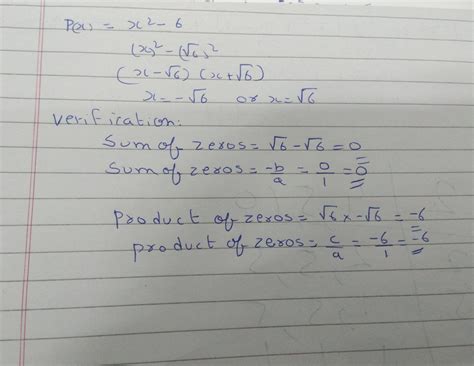 P(x) = x² - 6
(x)² - (√6)²
(x - √6) (x + √6)
x = -√6 or x = √6
Verification:
Sum of zeros = √6 - √6 = 0
Sum of zeros = -b/a = 0/1 = 0
product of zeros = √6 x -√6 = -6
product of zeros = c/a = -6/1 = -6